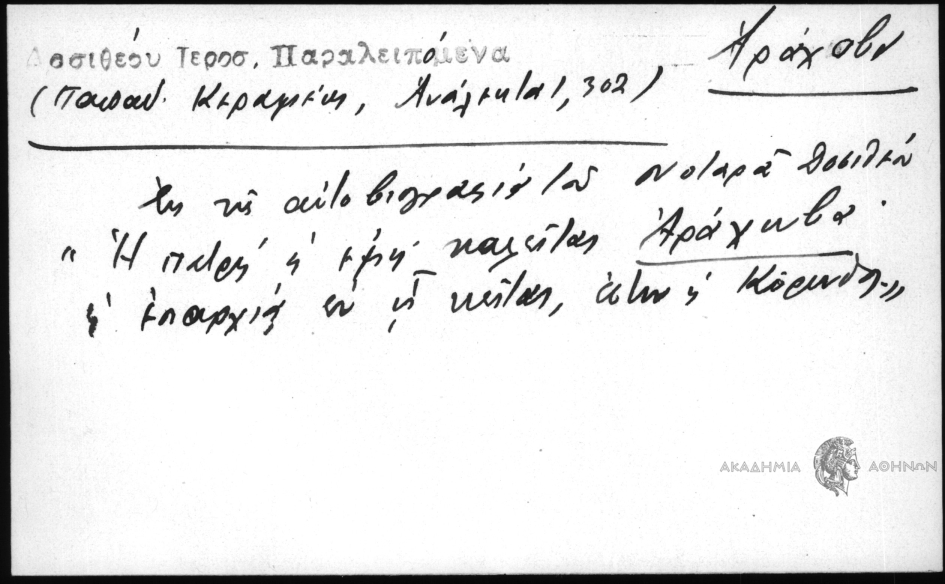 Δοσιθέου Ἱεροσ. Παραλειπόμενα
Ἀράχοβα
(Παπαδ. Κεραμέως, Ἀνάλεκτα 1, 302)
Ἐκ τῆς αὐτοβιογραφίας τοῦ Νοταρᾶ Δοσιθέου
"Ἡ πατρίς ἡ ἐμή καλεῖται Ἀράχωβα.
ἡ ἐπαρχία ἐν ᾗ κεῖται, ἔστιν ἡ Κόρινθος"
ΑΚΑΔΗΜΙΑ ΑΘΗΝΩΝ